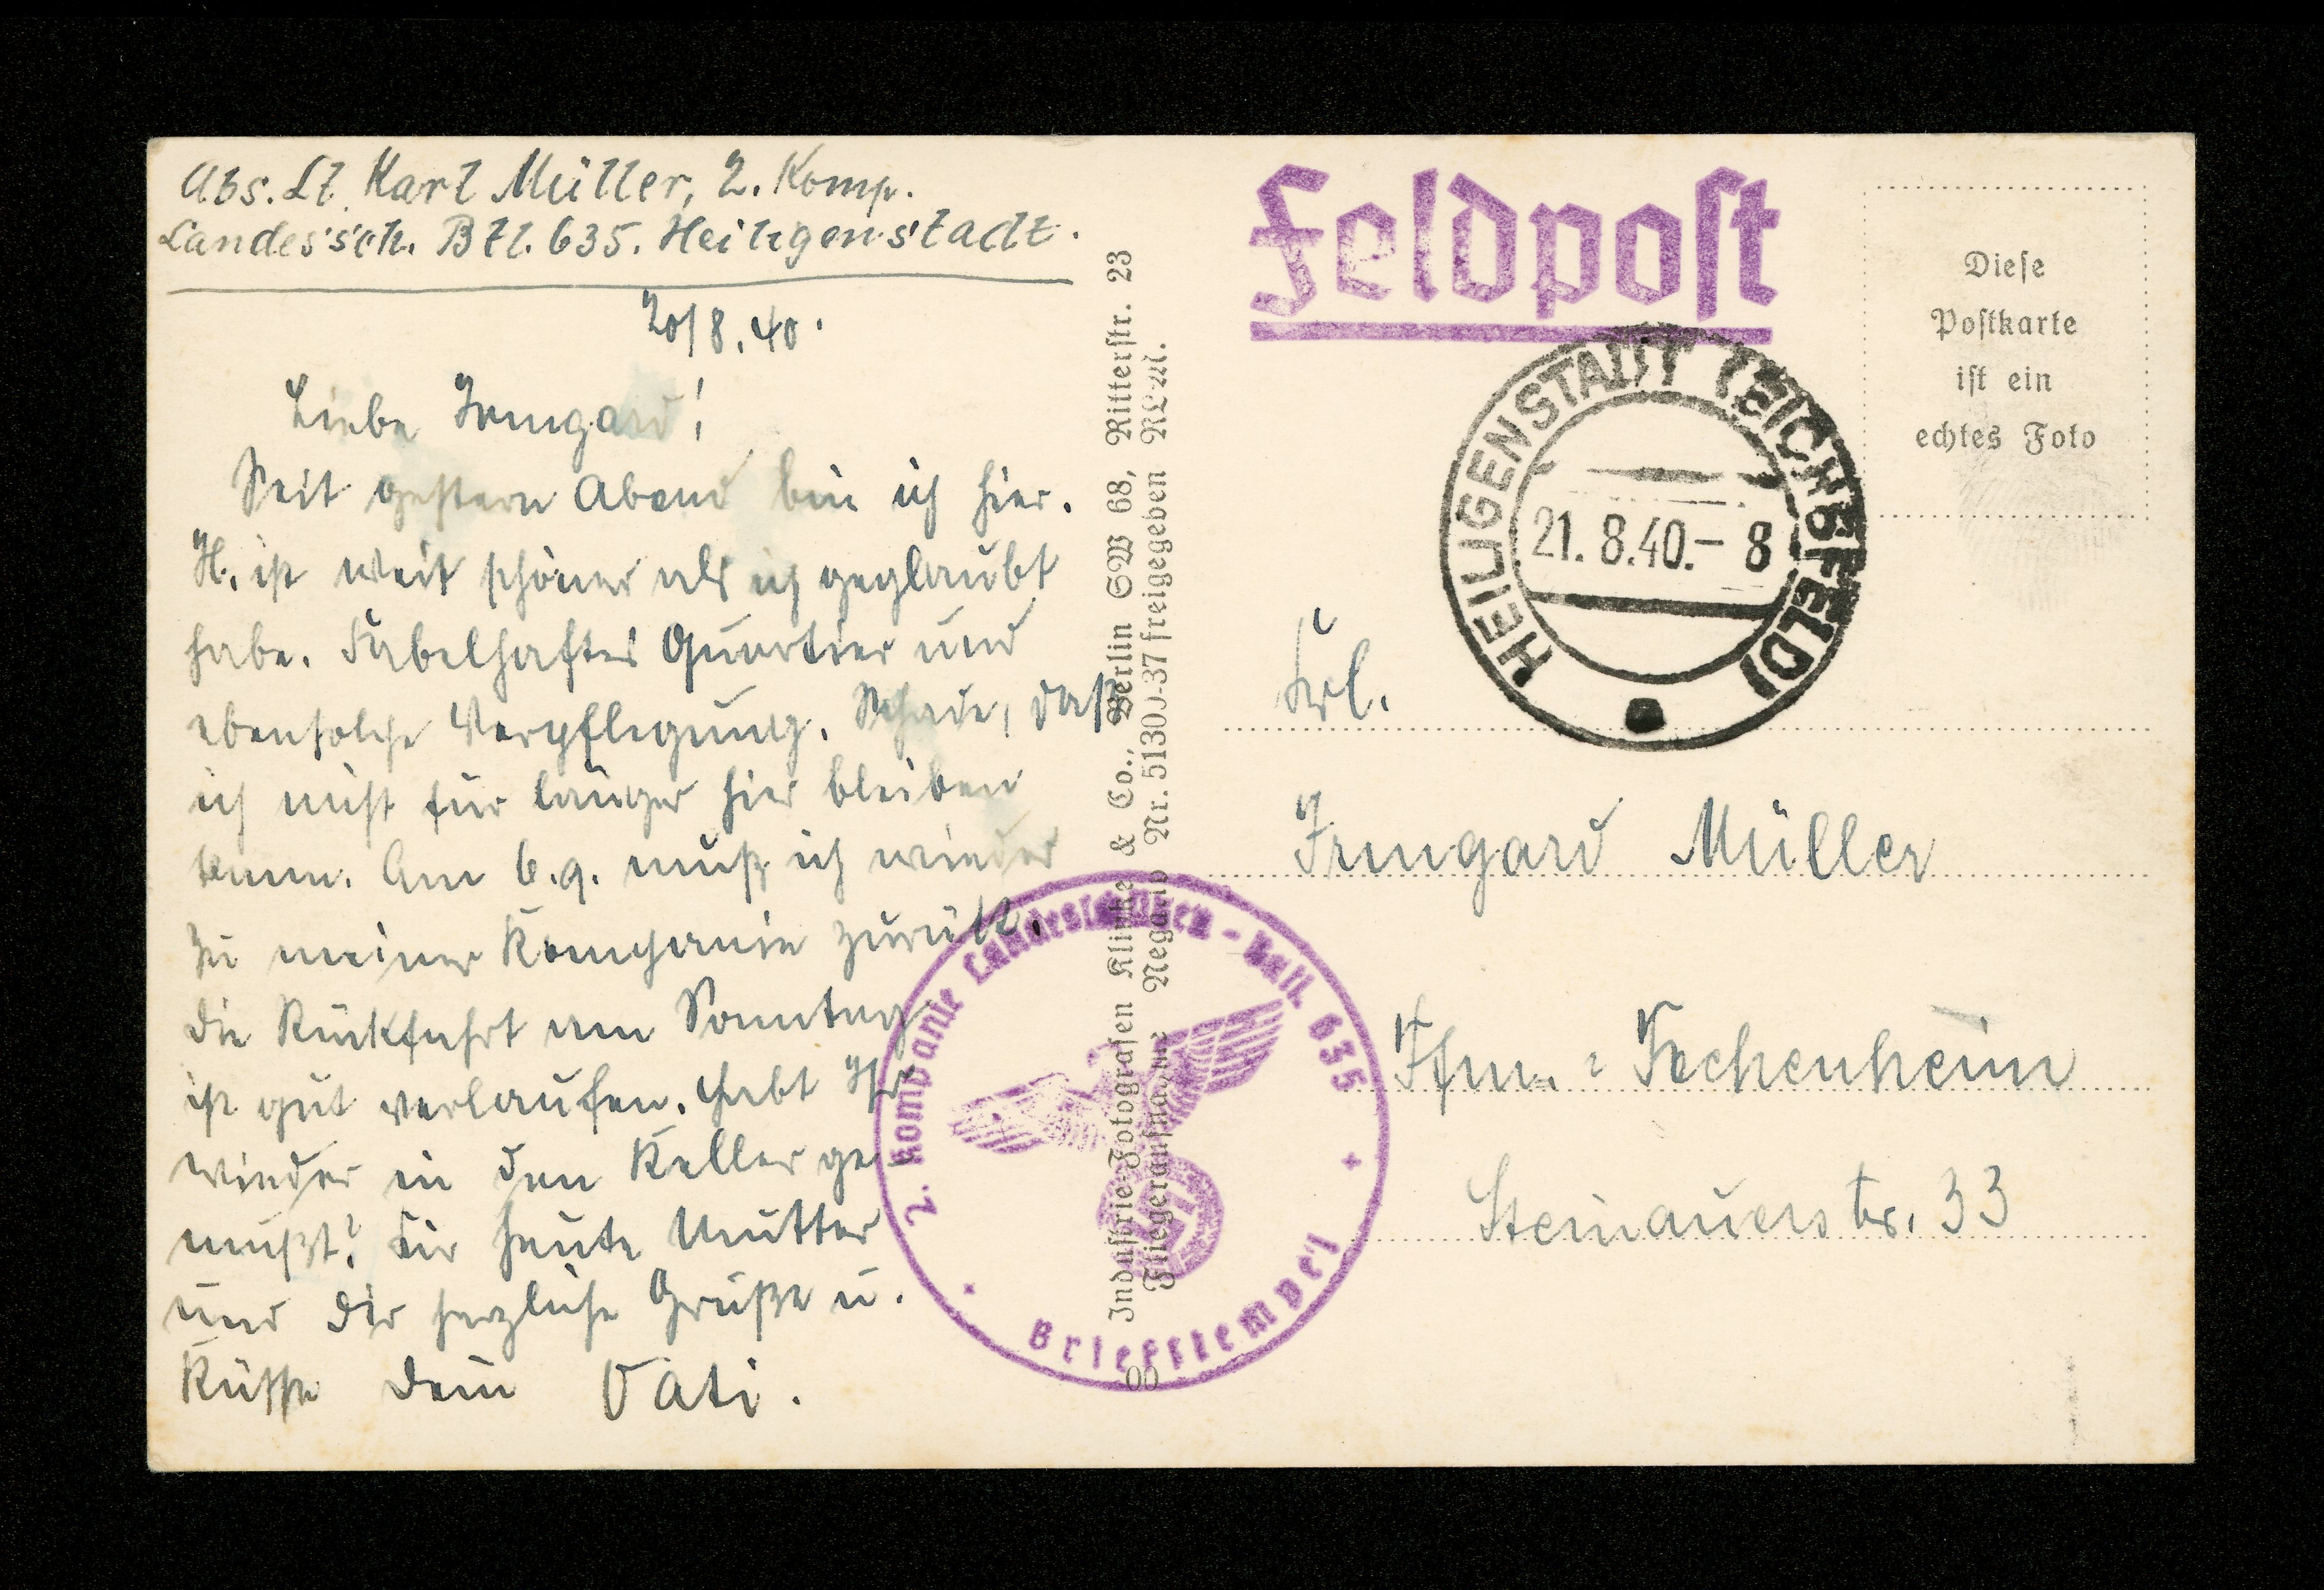 Abs. Lt. Karl Müller, 2. Komp.
Landessch. Btl. 635. Heiligenstadt.
20/8.40.
Liebe Irmgard!
Seit gestern Abend bin ich hier.
H. ist weit schöner als ich geglaubt
habe. Fabelhaftes Quartier und
ebensolche Verpflegung. Schade, daß
ich nicht für länger hier bleiben
kann. Am 6.9. muß ich wieder
zu meiner Kompanie zurück.
Die Rückfahrt am Sonntag
ist gut verlaufen. Habt Ihr
wieder in den Keller ge
mußt? Für heute Mutter
und Dir herzliche Grüße u.
Küsse Dein Vati.
Industrie-Fotografen Klinke & Co., Berlin SW 68, Ritterstr. 23
Fliegeraufnahme Negativ Nr. 51300-37 freigegeben RLM.
Feldpost
HEILIGENSTADT (EICHSFELD)
21.8.40.- 8
Diese
Postkarte
ist ein
echtes Foto
Frl.
Irmgard Müller
Ffm. = Fechenheim
Steinauerstr. 33
2. Kompanie Landesschützen-Batl. 635
Briefstempel